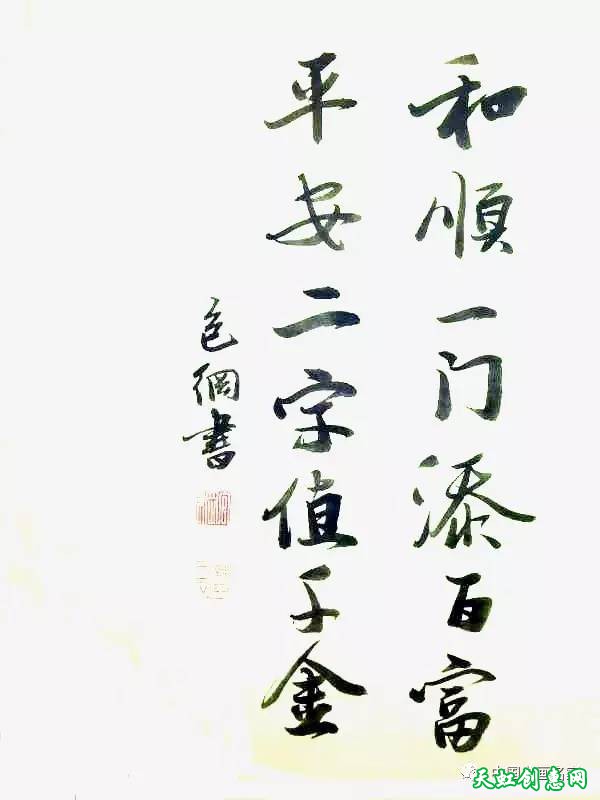 和順一门添百富
平安二字值千金
色綱書
天虹创意网